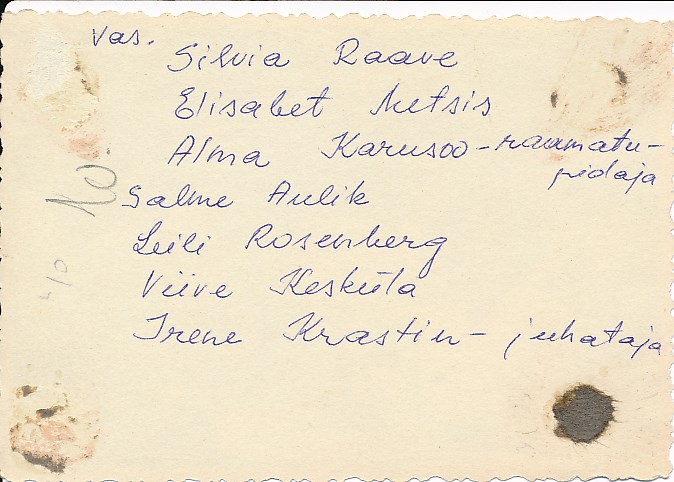 vas.
Silvia Raave
Elisabet Metsis
Alma Karusoo - raamatu-
pidaja
Salme Aulik
Leili Rosenberg
Viive Kesküla
Irene Krastin - juhataja